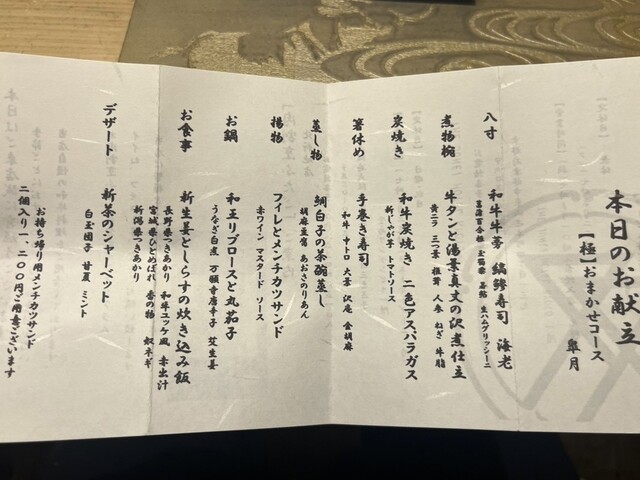 本日のお献立
【極】おまかせコース
皐月
八寸
和牛牛蒡 縞鯵寿司 海老
煮物椀
牛タンと湯葉真丈の沢煮仕立
黄ニラ 三つ葉 椎茸 人参 ねぎ 牛脂
炭焼き
和牛炭焼き 二色アスパラガス
新じゃが芋 トマトソース
箸休め
手巻き寿司
和牛 中トロ 大葉 沢庵 金胡麻
蒸し物
鯛白子の茶碗蒸し
胡麻豆腐 あおさのりあん
揚物
フィレとメンチカツサンド
赤ワイン マスタード ソース
お鍋
和王リブロースと丸茄子
うなぎ白煮 万願寺唐辛子 艾生姜
お食事
新生姜としらすの炊き込み飯
長野県つきあかり 和牛ユッケ風 赤出汁
宮城県ひとめぼれ 香の物 奴ネギ
新潟県つきあかり
デザート
新茶のシャーベット
白玉団子 甘夏 ミント
お持ち帰り用メンチカツサンド
二個入り一、二〇〇円ご用意ございます